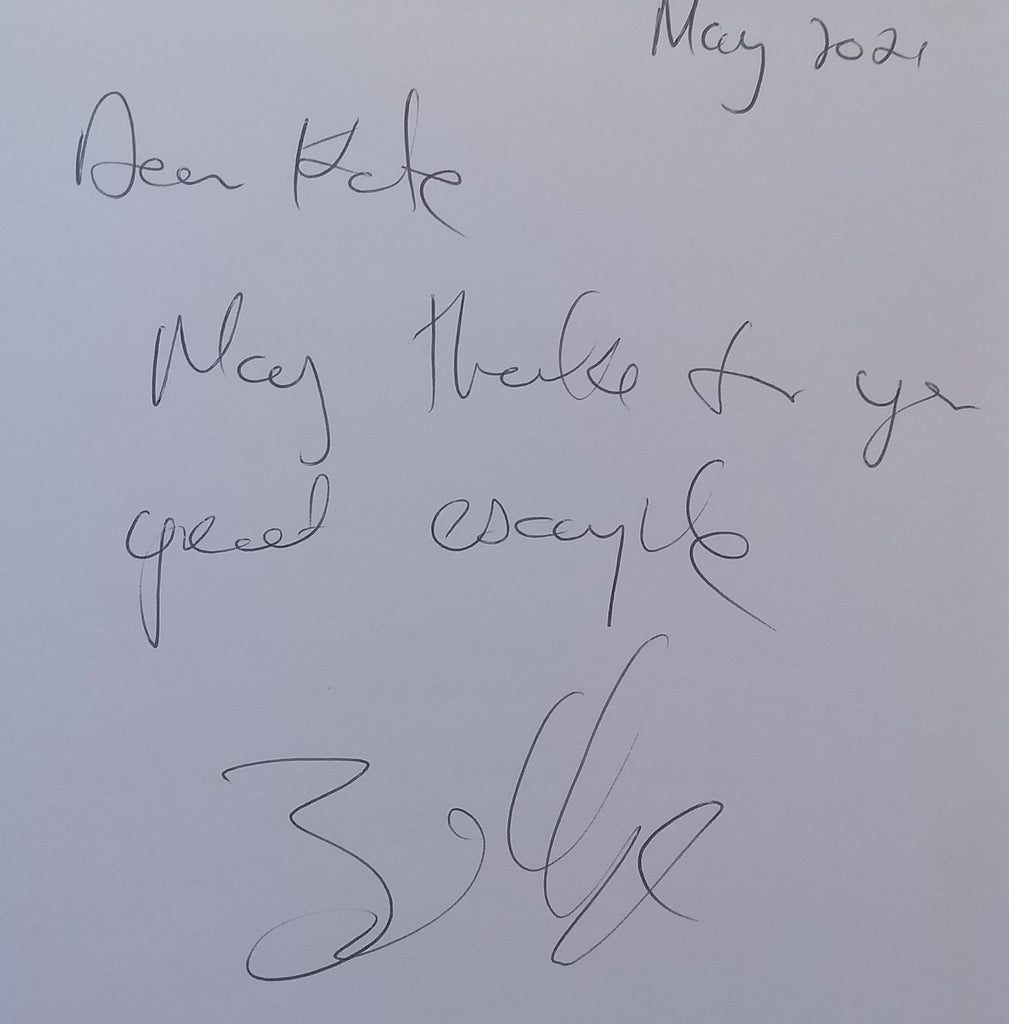 May 2021
Dear Kate
Many thanks for your
great example